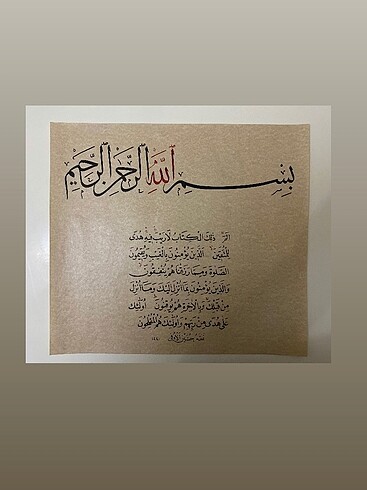 بِسْمِ ٱللَّهِ ٱلرَّحْمٰنِ ٱلرَّحِيمِ
الٓمٓ ذٰلِكَ الْكِتَابُ لَا رَيْبَ فِيهِ هُدًى
لِلْمُتَّقِينَ الَّذِينَ يُؤْمِنُونَ بِالْغَيْبِ وَيُقِيمُونَ
الصَّلٰوةَ وَمِمَّا رَزَقْنَاهُمْ يُنْفِقُونَ
وَالَّذِينَ يُؤْمِنُونَ بِمَا أُنْزِلَ إِلَيْكَ وَمَا أُنْزِلَ
مِنْ قَبْلِكَ وَبِالْآخِرَةِ هُمْ يُوقِنُونَ أُولٰئِكَ
عَلَى هُدًى مِنْ رَبِّهِمْ وَأُولٰئِكَ هُمُ الْمُفْلِحُونَ